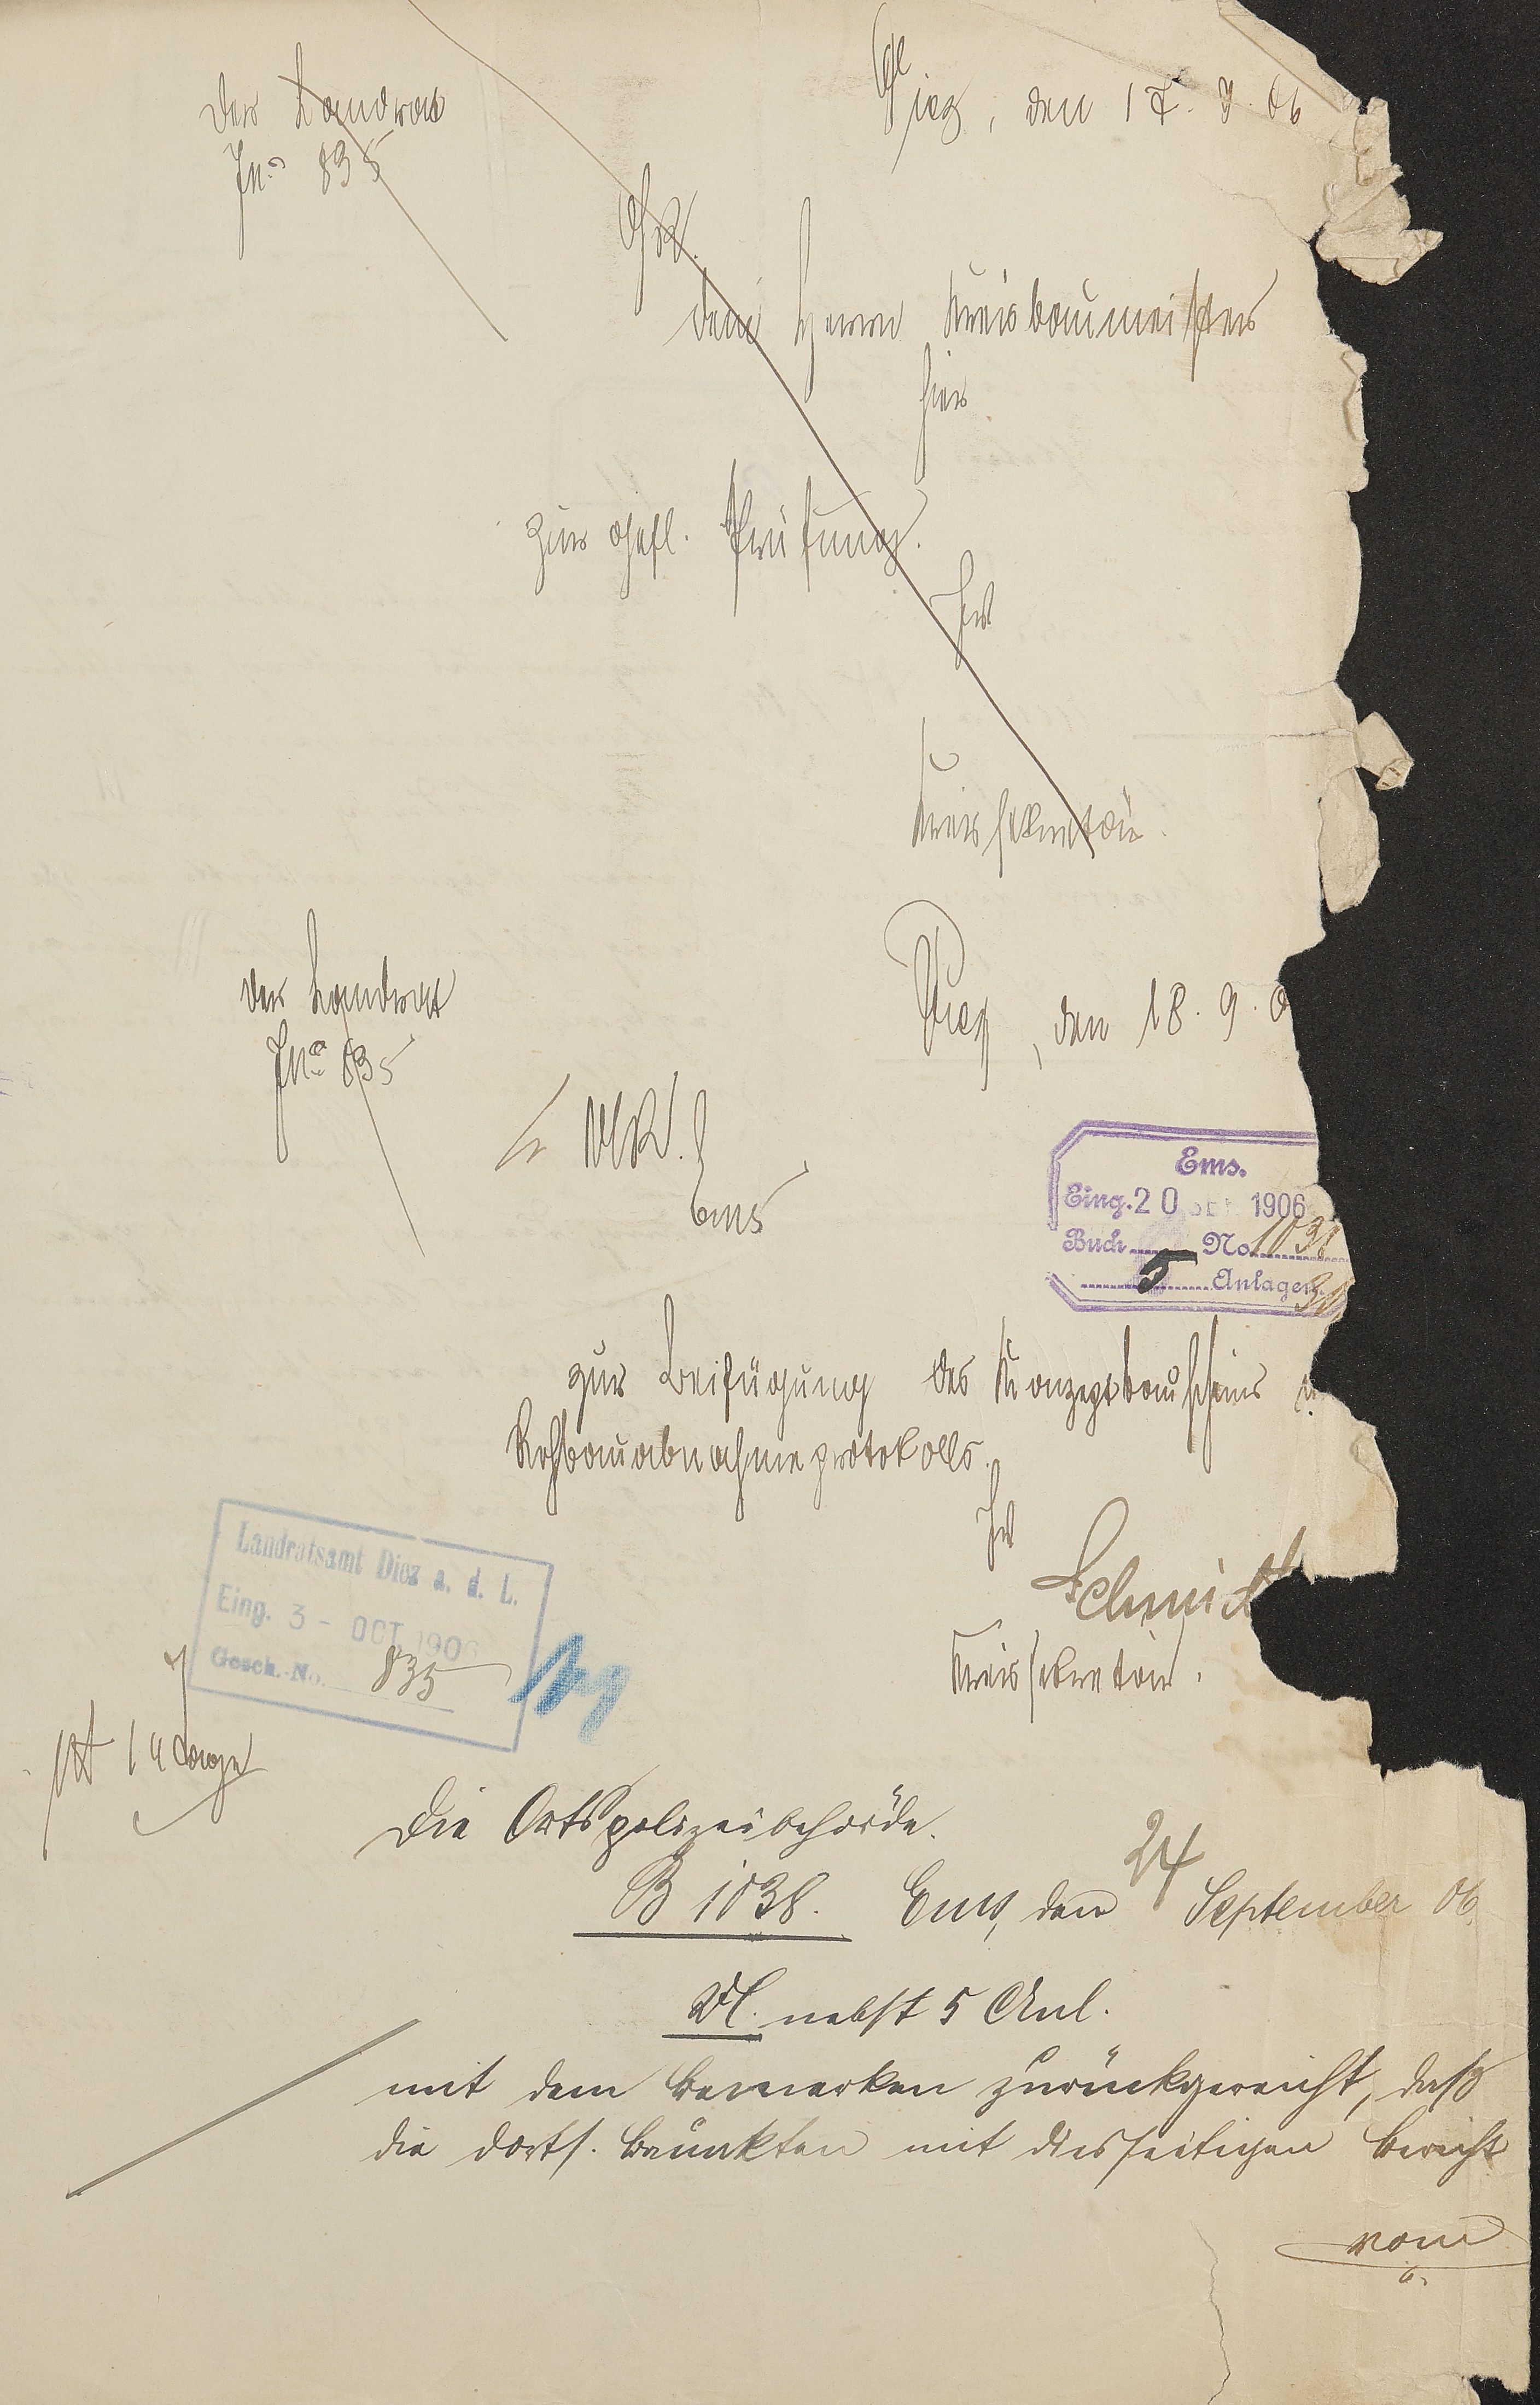 Der Landrat
Diez, den 17. 9. 06
J.No 835
dem Herrn Kreisbaumeister
hier
zur gefl. Prüfung.
JV
Kreissekretär.
Der Landrat
Diez, den 18. 9. 0
J.No 835
Ems
Ems.
Eing. 20 SEP 1906
Buch No 1038
5 Anlagen
zur Beifügung des Konzeptbauscheins
Rohbauabnahmeprotokolls.
JV
Schmidt
Kreissekretär.
Landratsamt Diez a. d. L.
Eing. 3 - OCT 1906
Gesch.-No. 835
Die Ortspolizeibehörde.
B 1038. Ems, den 24 September 06.
nebst 5 Anl.
mit dem Bemerken zurückgereicht, daß
die dorts. Bauakten mit diesseitigen Bericht
vom